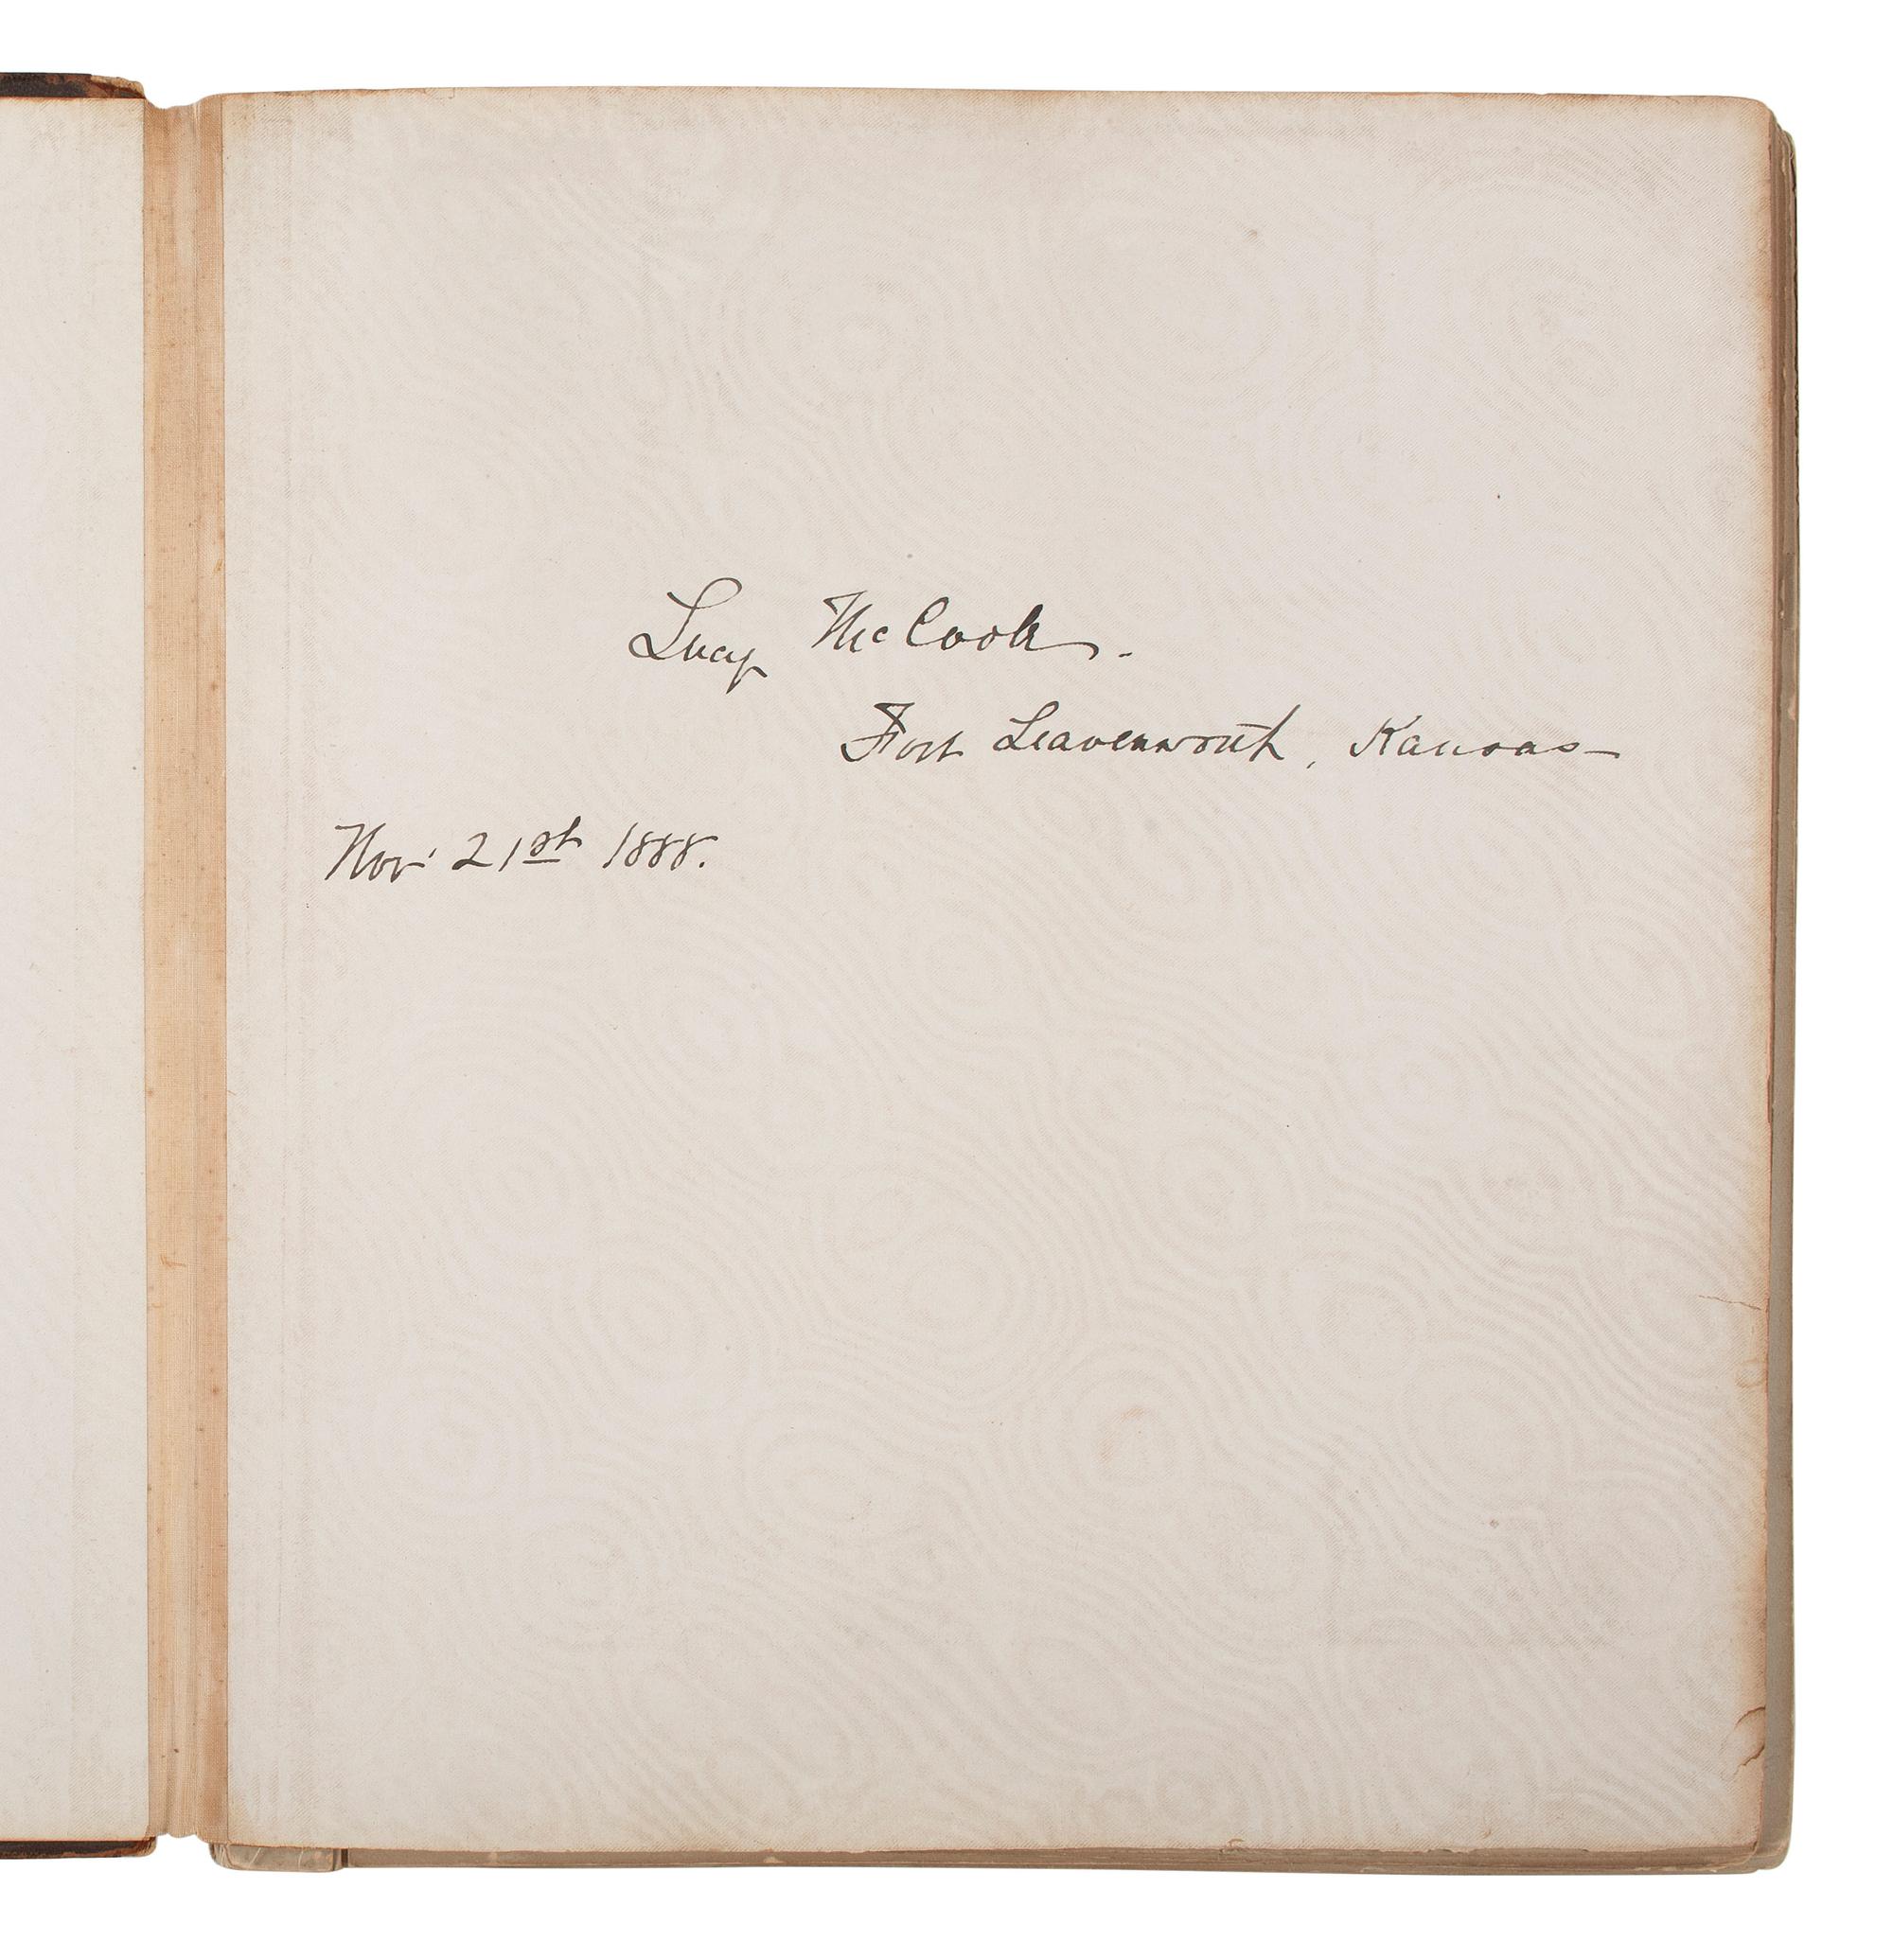 Lucy McCook.
Fort Leavenworth, Kansas—
Nov' 21st 1888.